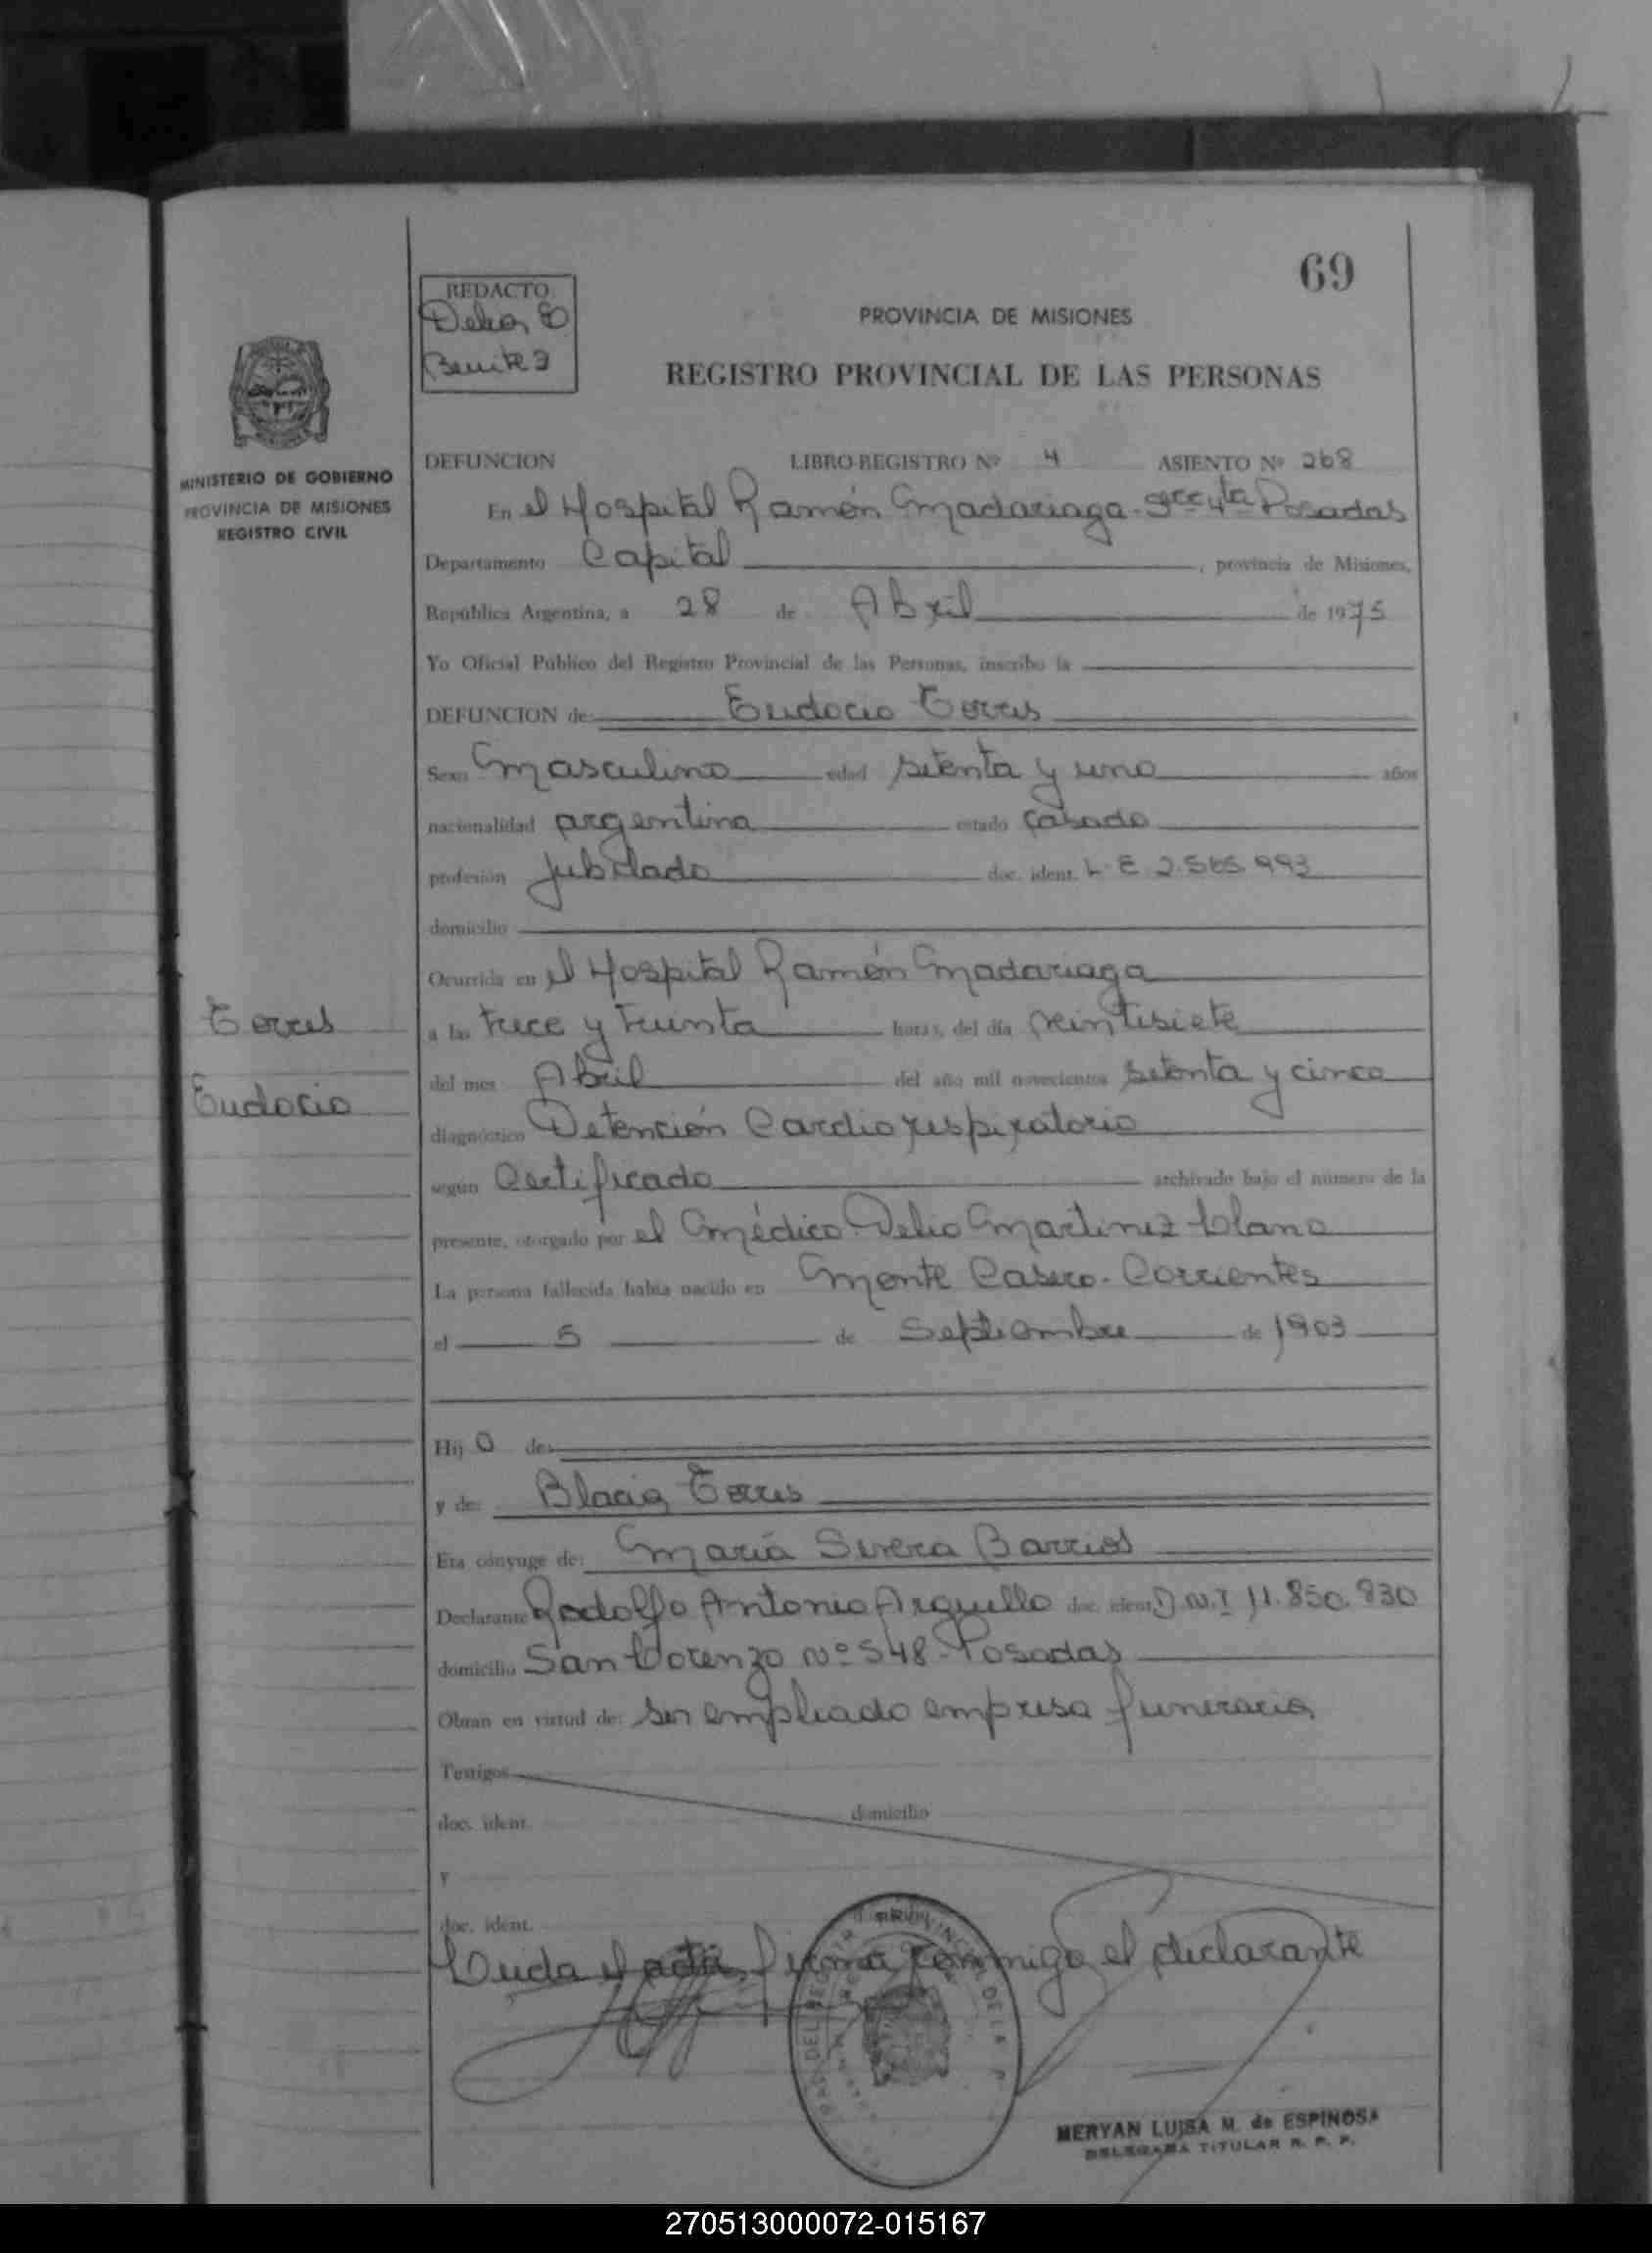 69
REDACTO
Delia E
Benitez
PROVINCIA DE MISIONES
REGISTRO PROVINCIAL DE LAS PERSONAS
MINISTERIO DE GOBIERNO
PROVINCIA DE MISIONES
REGISTRO CIVIL
DEFUNCION LIBRO-REGISTRO Nº 4 ASIENTO Nº 268
En el Hospital Ramón Madariaga - Secc 4ta Posadas
Departamento Capital, provincia de Misiones,
República Argentina, a 28 de Abril de 1975
Yo Oficial Público del Registro Provincial de las Personas, inscribo la
DEFUNCION de: Eudocio Torres
Sexo Masculino edad setenta y uno años
nacionalidad argentina estado casado
profesión Jubilado doc. ident. L E 2.565.993
domicilio
Ocurrida en el Hospital Ramón Madariaga
Torres
a las trece y treinta horas, del día veintisiete
Eudocio
del mes Abril del año mil novecientos setenta y cinco
diagnóstico Detención Cardio respiratorio
según Certificado archivado bajo el número de la
presente, otorgado por el Médico Delio Martinez Llano
La persona fallecida había nacido en Monte Casero - Corrientes
el 5 de Septiembre de 1903
Hij o de:
y de: Blacia Torres
Era cónyuge de: María Severa Barrios
Declarante Rodolfo Antonio Arguello doc. ident. D.N.I 11.850.830
domicilio San Lorenzo Nº 548 - Posadas
Obran en virtud de: ser empleado empresa funeraria
Testigos
doc. ident. domicilio
y
doc. ident.
Leida el acta, firma conmigo el declarante
MERYAN LUISA M. de ESPINOSA
DELEGADA TITULAR R. P. P.
270513000072-015167